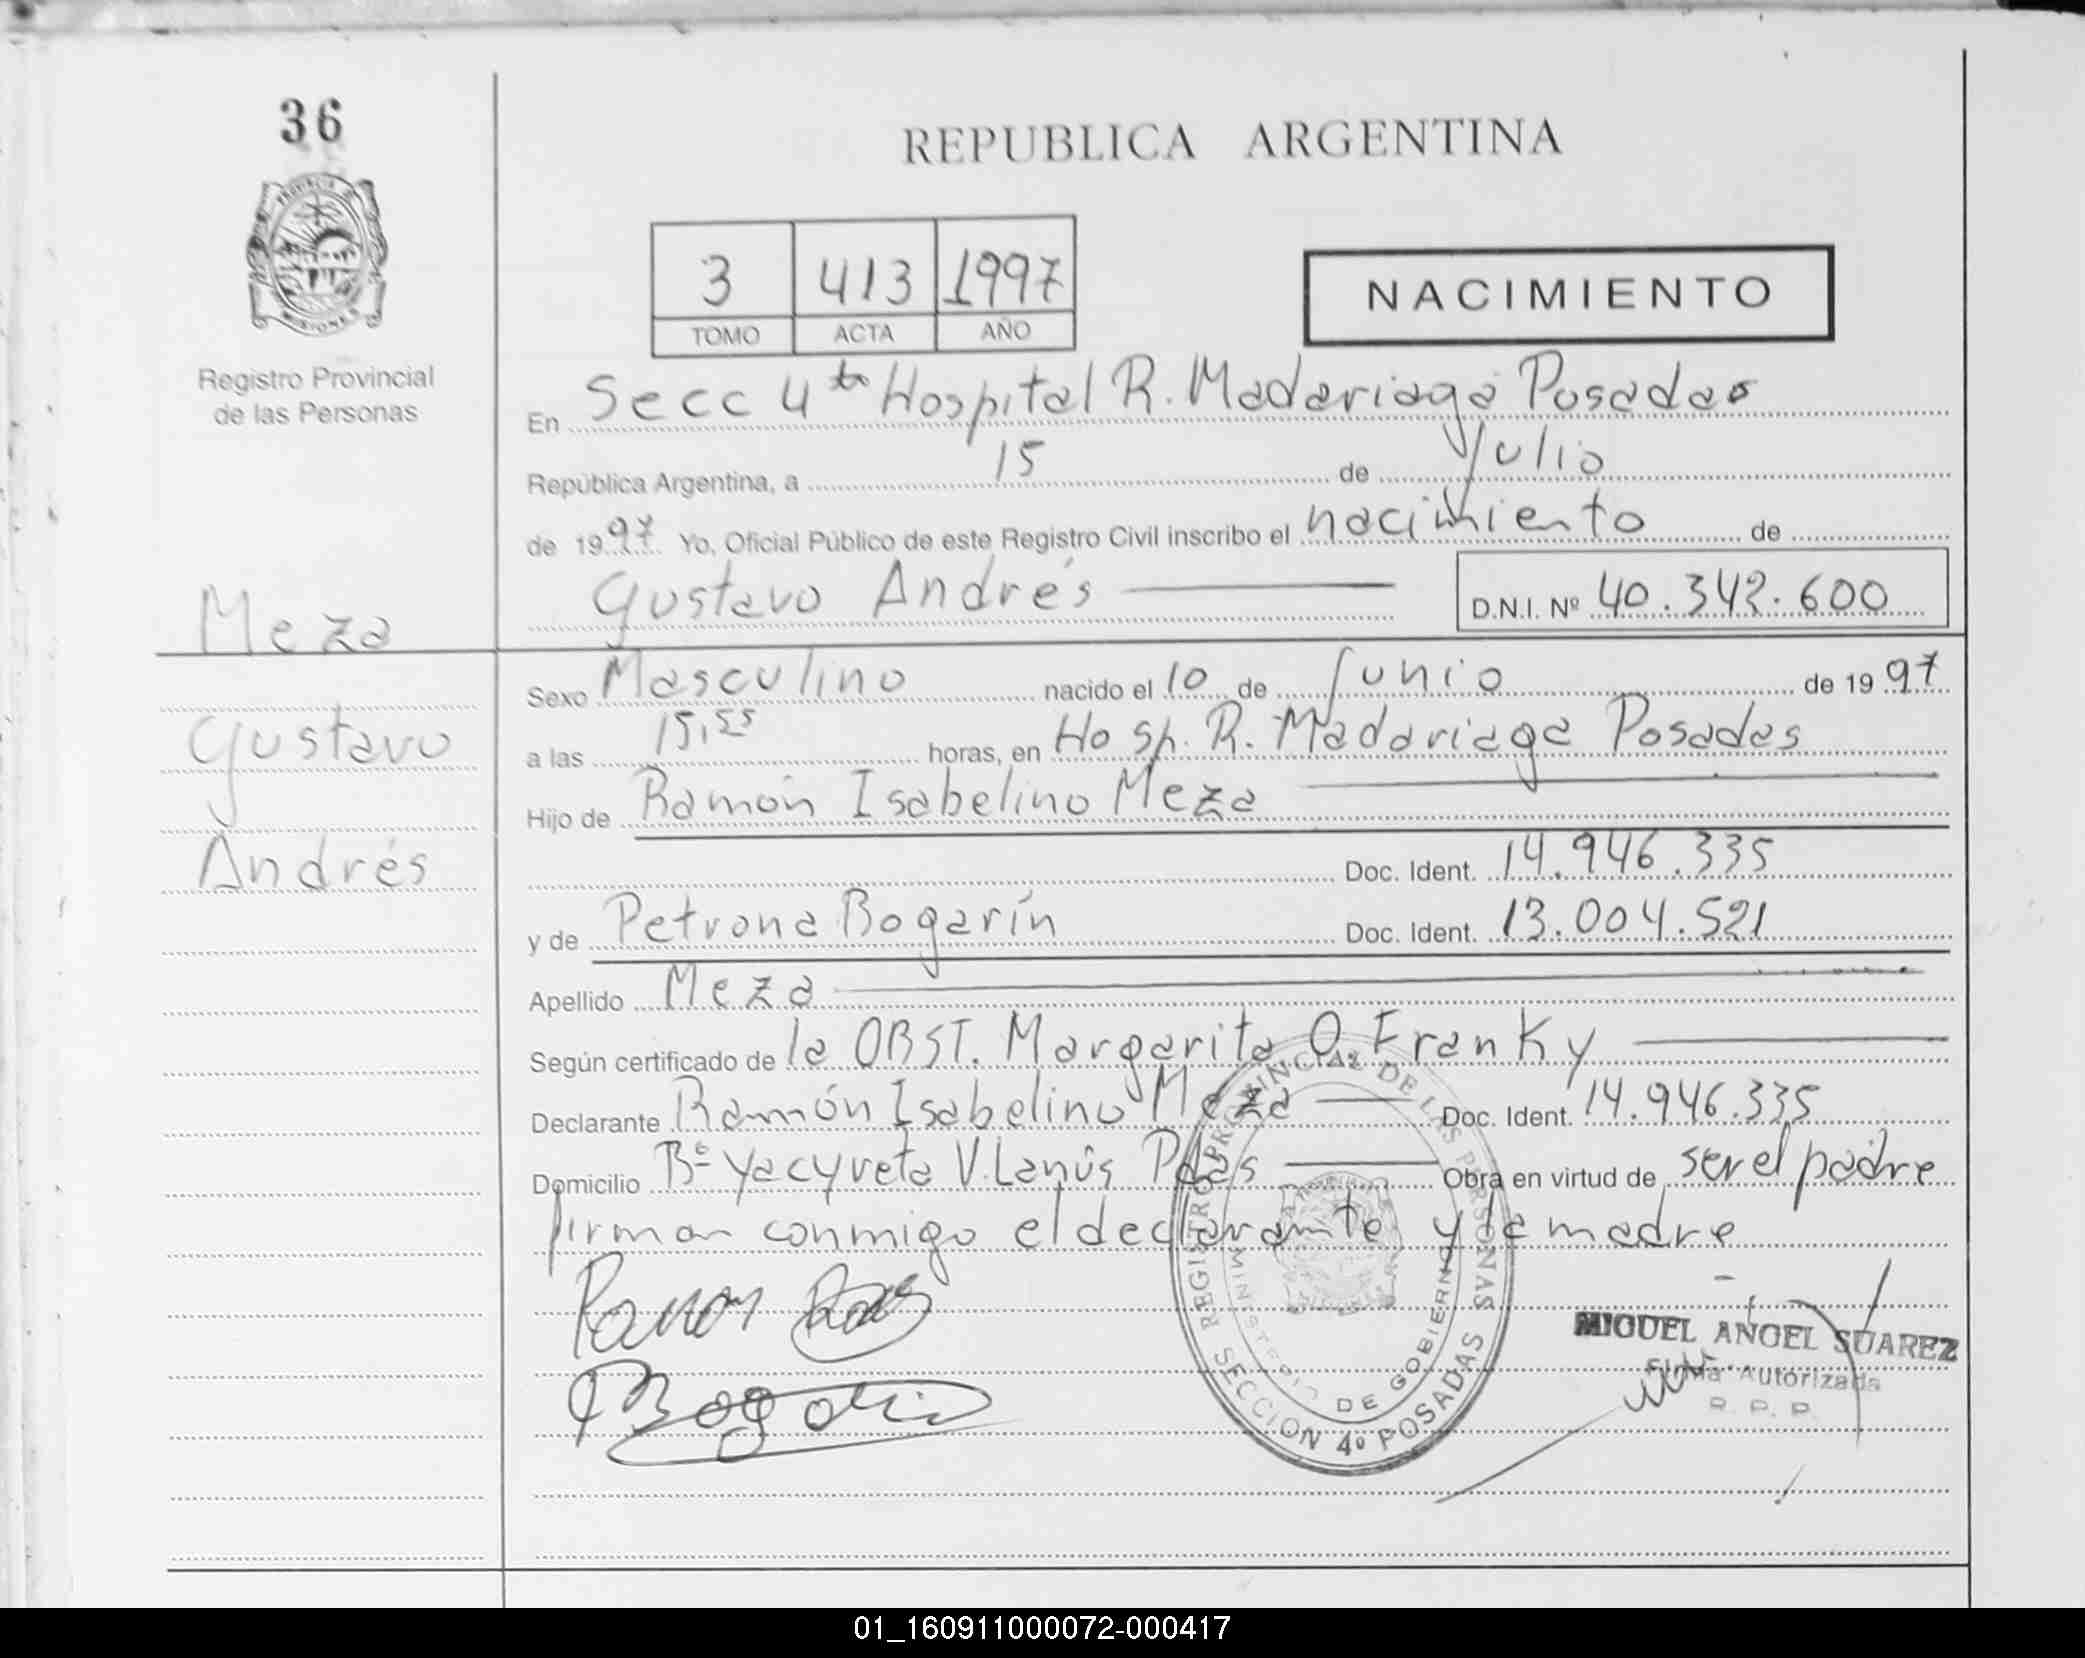 36
REPUBLICA ARGENTINA
PROVINCIA DE
MISIONES
3 413 1997
TOMO ACTA AÑO
NACIMIENTO
Registro Provincial
de las Personas
En Secc 4ta Hospital R. Madariaga Posadas
República Argentina, a 15 de Julio
de 1997 Yo, Oficial Público de este Registro Civil inscribo el nacimiento de
Gustavo Andrés
D.N.I. Nº 40.342.600
Meza
Gustavo
Andrés
Sexo Masculino nacido el 10 de Junio de 1997
a las 15,55 horas, en Hosp. R. Madariaga Posadas
Hijo de Ramón Isabelino Meza
Doc. Ident. 14.946.335
y de Petrona Bogarín Doc. Ident. 13.004.521
Apellido Meza
Según certificado de la OBST. Margarita O. Franky
Declarante Ramón Isabelino Meza Doc. Ident. 14.946.335
Domicilio Bº Yacyreta V. Lanús Pdas Obra en virtud de ser el padre
firman conmigo el declarante y la madre
REGISTRO PROVINCIAL DE LAS PERSONAS
MINISTERIO DE GOBIERNO
SECCION 4º POSADAS
Ramon
Bogarin
MIGUEL ANGEL SUAREZ
Firma Autorizada
R. P. P.
01_160911000072-000417